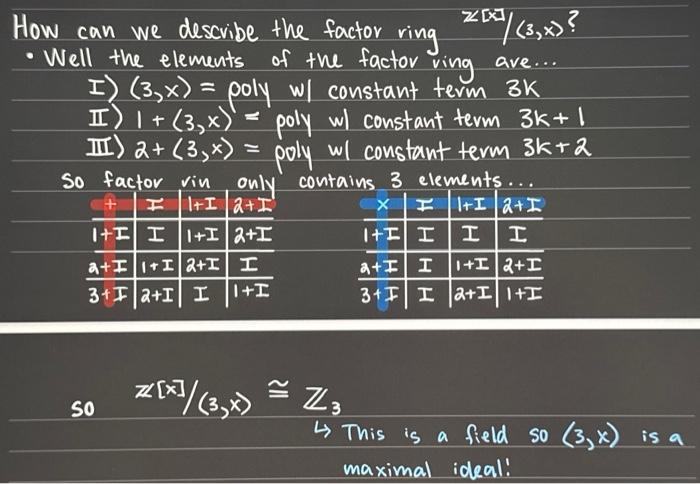 How can we describe the factor ring ℤ[x]/(3,x)?
• Well the elements of the factor ring are...
I) (3,x) = poly w/ constant term 3K
II) 1 + (3,x) = poly w/ constant term 3K+1
III) 2+ (3,x) = poly w/ constant term 3K+2
So factor rin only contains 3 elements...
+ I 1+I 2+I × I 1+I 2+I
1+I I 1+I 2+I 1+I I I I
2+I 1+I 2+I I 2+I I 1+I 2+I
3+I 2+I I 1+I 3+I I 2+I 1+I
so ℤ[x]/(3,x) ≅ ℤ₃
↳ This is a field so (3,x) is a
maximal ideal!